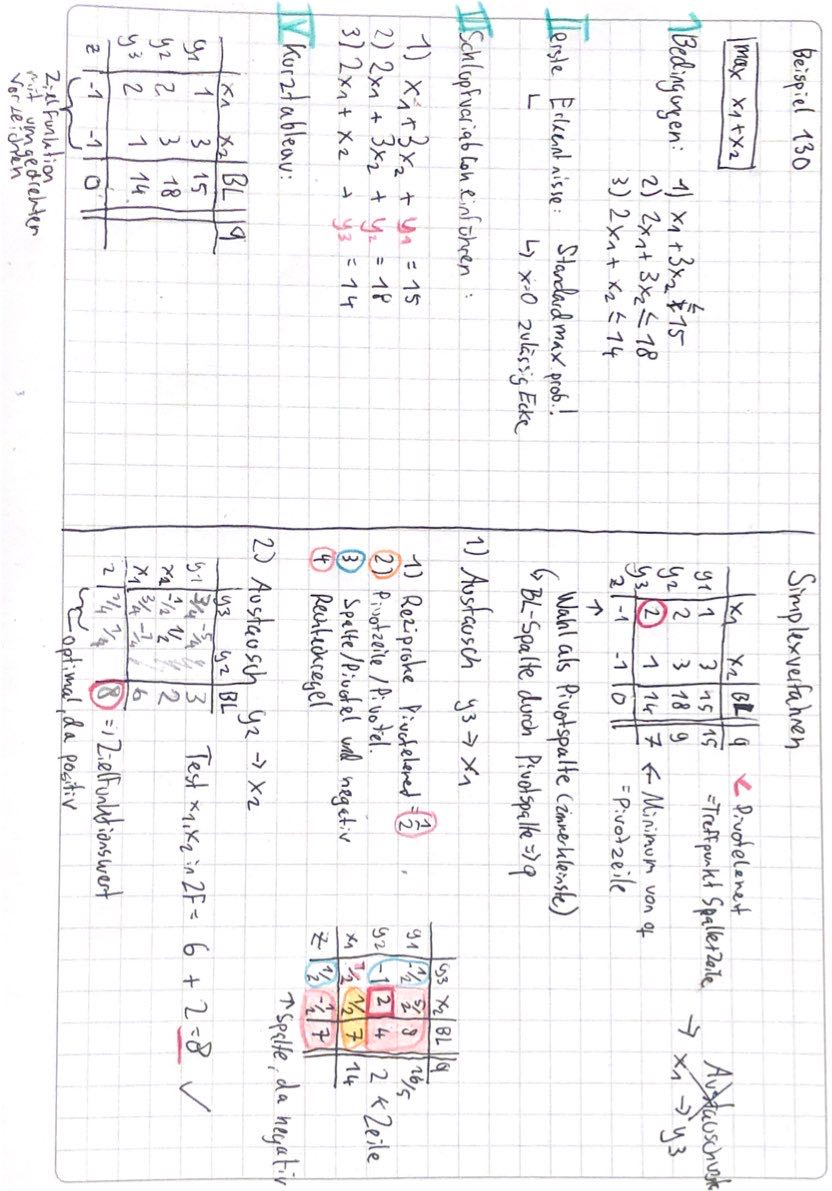 Beispiel 130
max x1+x2
I Bedingungen: 1) x1 + 3x2 ≤ 15
2) 2x1 + 3x2 ≤ 18
3) 2x1 + x2 ≤ 14
II erste Erkenntnisse: Standardmax prob.!
↳ x=0 zulässig Ecke
III Schlupfvariablen einführen :
1) x1 + 3x2 + y1 = 15
2) 2x1 + 3x2 + y2 = 18
3) 2x1 + x2 + y3 = 14
IV Kurztableau:
x1 x2 BL q
y1 1 3 15
y2 2 3 18
y3 2 1 14
z -1 -1 0
Zielfunktion
mit umgedrehten
Vorzeichen
Simplexverfahren
x1 x2 BL q
y1 1 3 15 15
y2 2 3 18 9
y3 2 1 14 7
z -1 -1 0
← Pivotelement
=Treffpunkt Spalte+Zeile
← Minimum von q
=Pivotzeile
→ x1 → y3
↑
Wahl als Pivotspalte (immer kleinste)
↳ BL-Spalte durch Pivotspalte => q
1) Austausch y3 → x1
1) Reziproke Pivotelement = 1/2
2) Pivotzeile / Pivotel.
3 Spalte/Pivotel und negativ
4 Rechteckregel
y3 x2 BL q
y1 -1/2 5/2 8 16/5
y2 -1 2 4 2 ← Zeile
x1 1/2 1/2 7 14
z 1/2 -1/2 7
↑ Spalte, da negativ
2) Austausch y2 → x2
y3 y2 BL
y1 3/4 -5/4 3
x2 -1/2 1/2 2
x1 3/4 -1/4 6
z 1/4 1/4 8 => Zielfunktionswert
optimal, da positiv
Test x1,x2 in ZF = 6 + 2 = 8 ✓